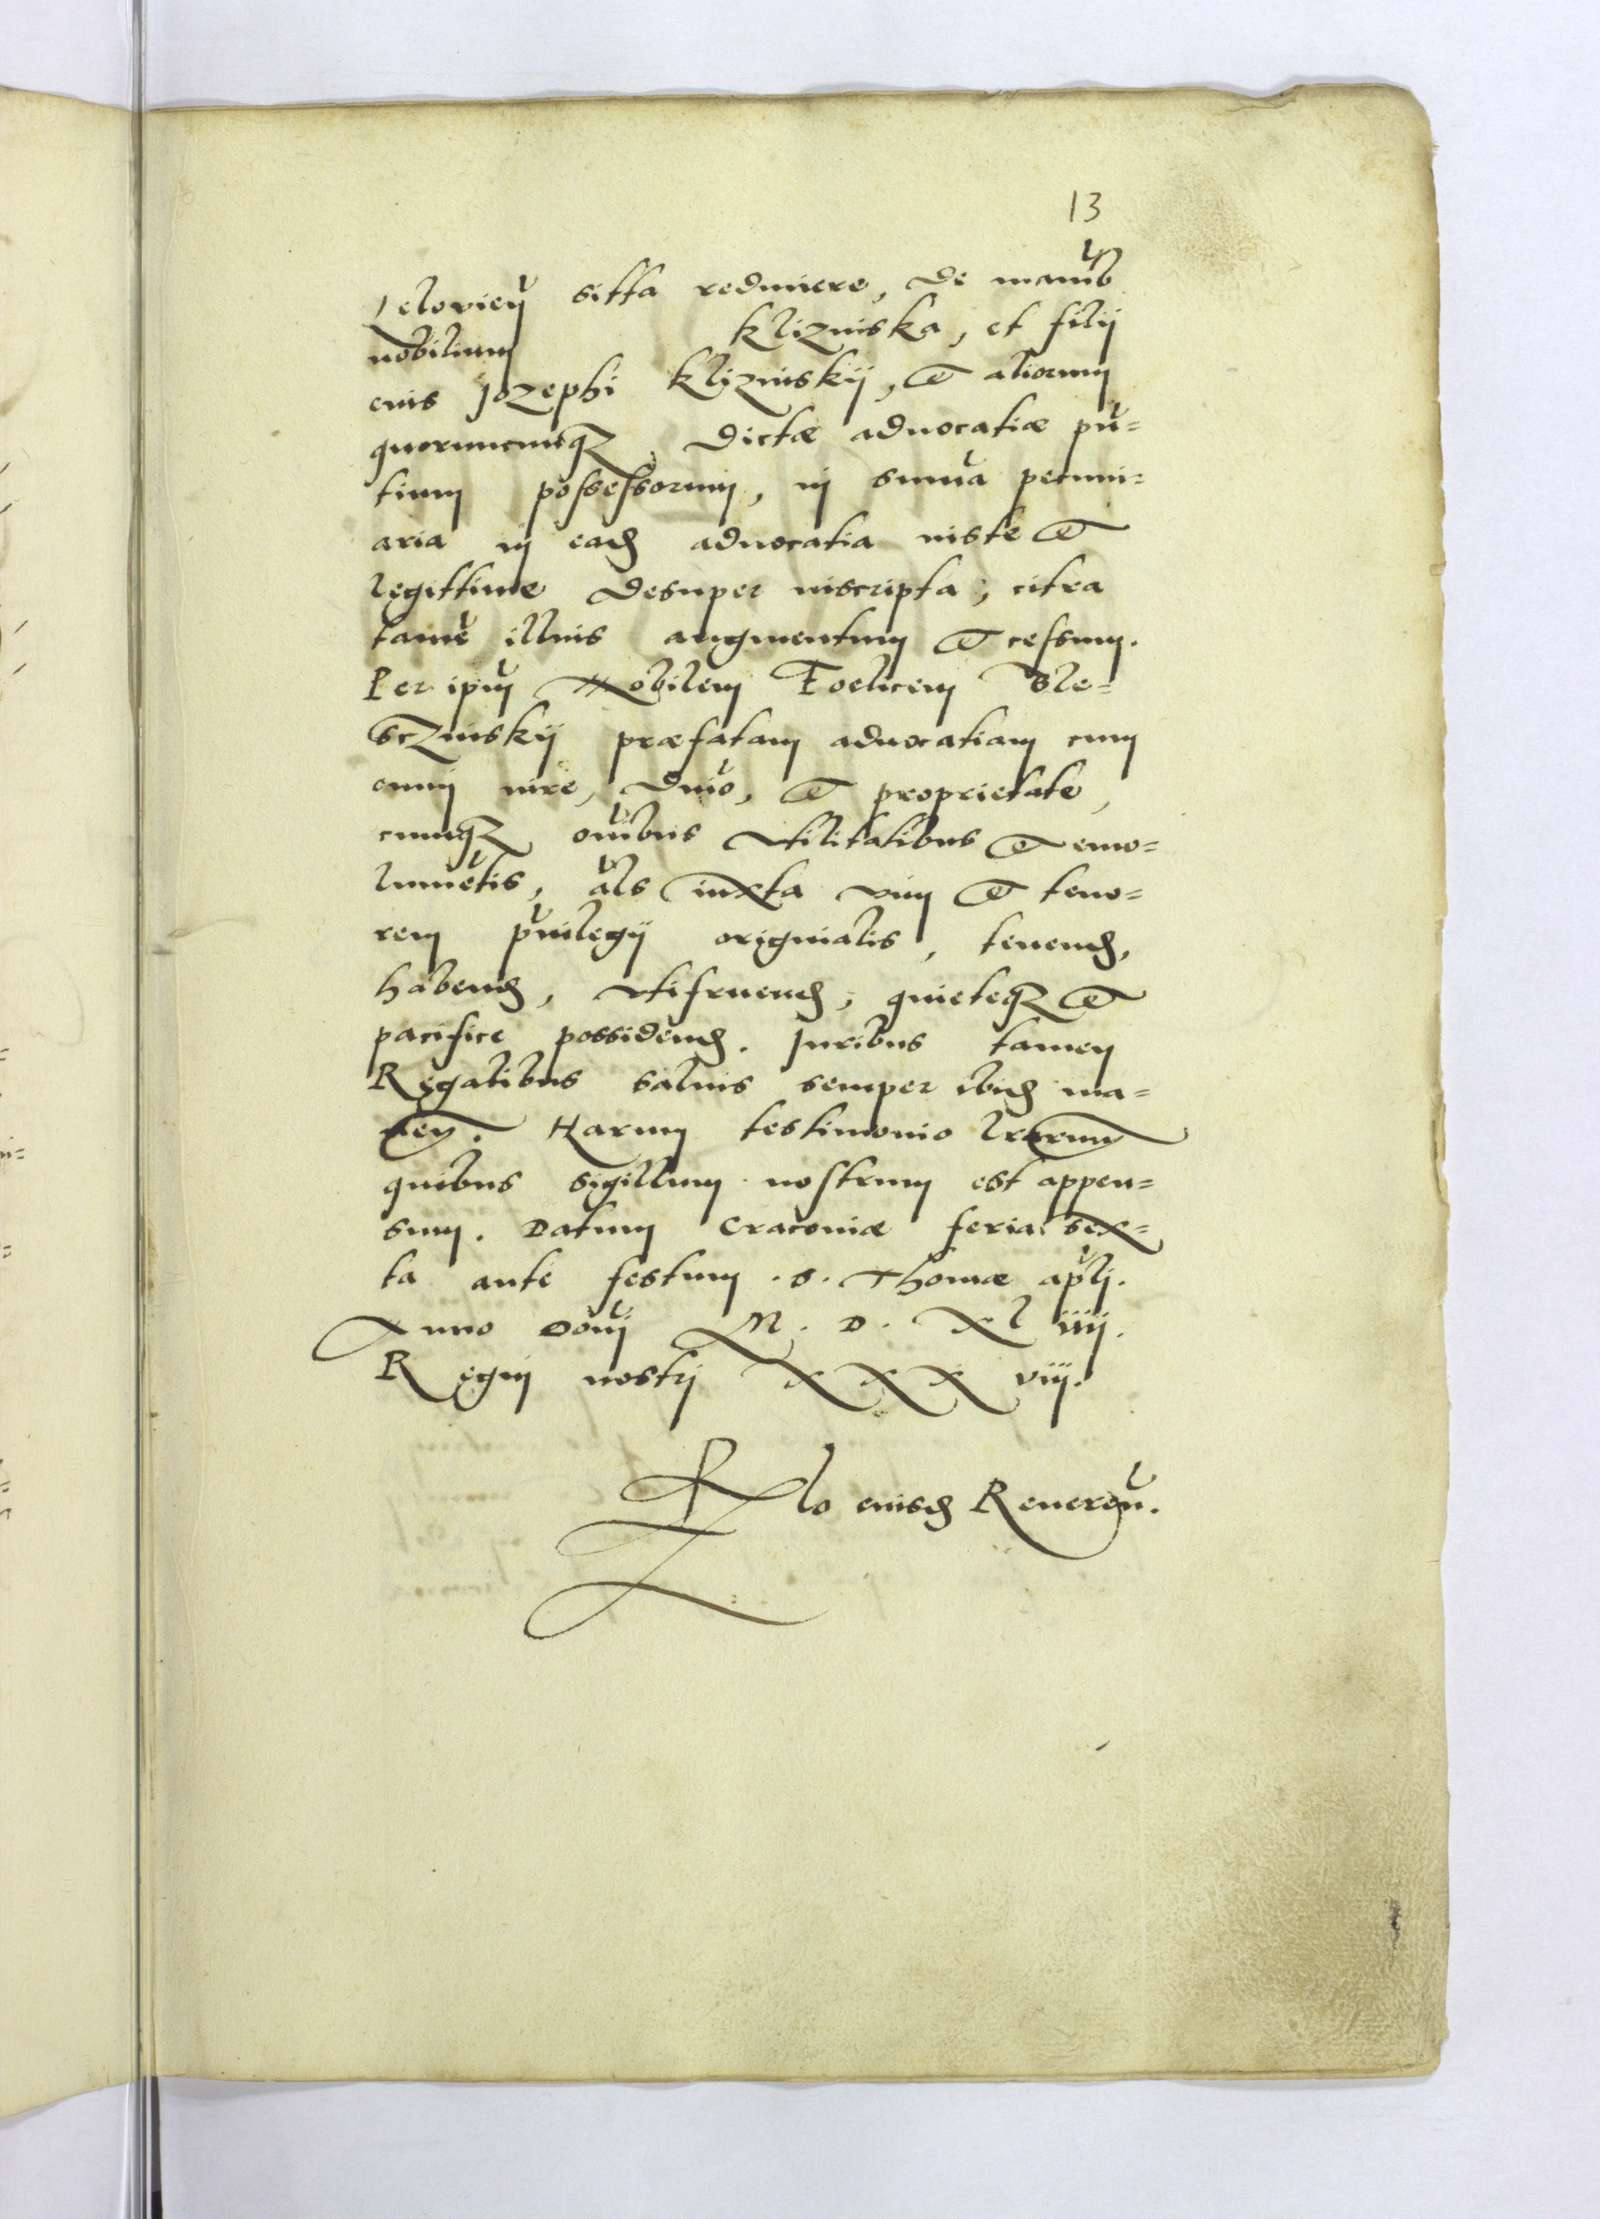 13
Lelovien̄ sitta redimere, de manib9
nobilium Klizinska, et filij
eius Jozephi Klizinskij, et aliorum
quorumcunq3 dictæ aduocatiæ pn̄=
tium possessorum, in summa pecuni=
aria in ead aduocatia iuste et
legittime desuper inscripta, citra
tamē illius augmentum et cessum.
Per ipm̄ Nobilem Foelicem Ble=
sczinskij præfatam aduocatiam cum
omni iure, dn̄io, et proprietate,
cumq3 om̄ibus vtilitatibus et emo=
lumētis, al̄s iuxta vim et teno=
rem pūilegij originalis, tenend,
habend, vtifruend, quieteq3 et
pacifice possidend. Juribus tamen
Regalibus saluis semper ibid ma=
nen. Harum testimonio lrarum
quibus sigillum nostrum est appen=
sum. Datum Cracoviæ feria sex=
ta ante festum .S. Thomæ ap̄li.
Anno Dom̄ M. D. Xl iiij.
Regni nostrj XXX viij.
Rlo eiusd Reueren̄.